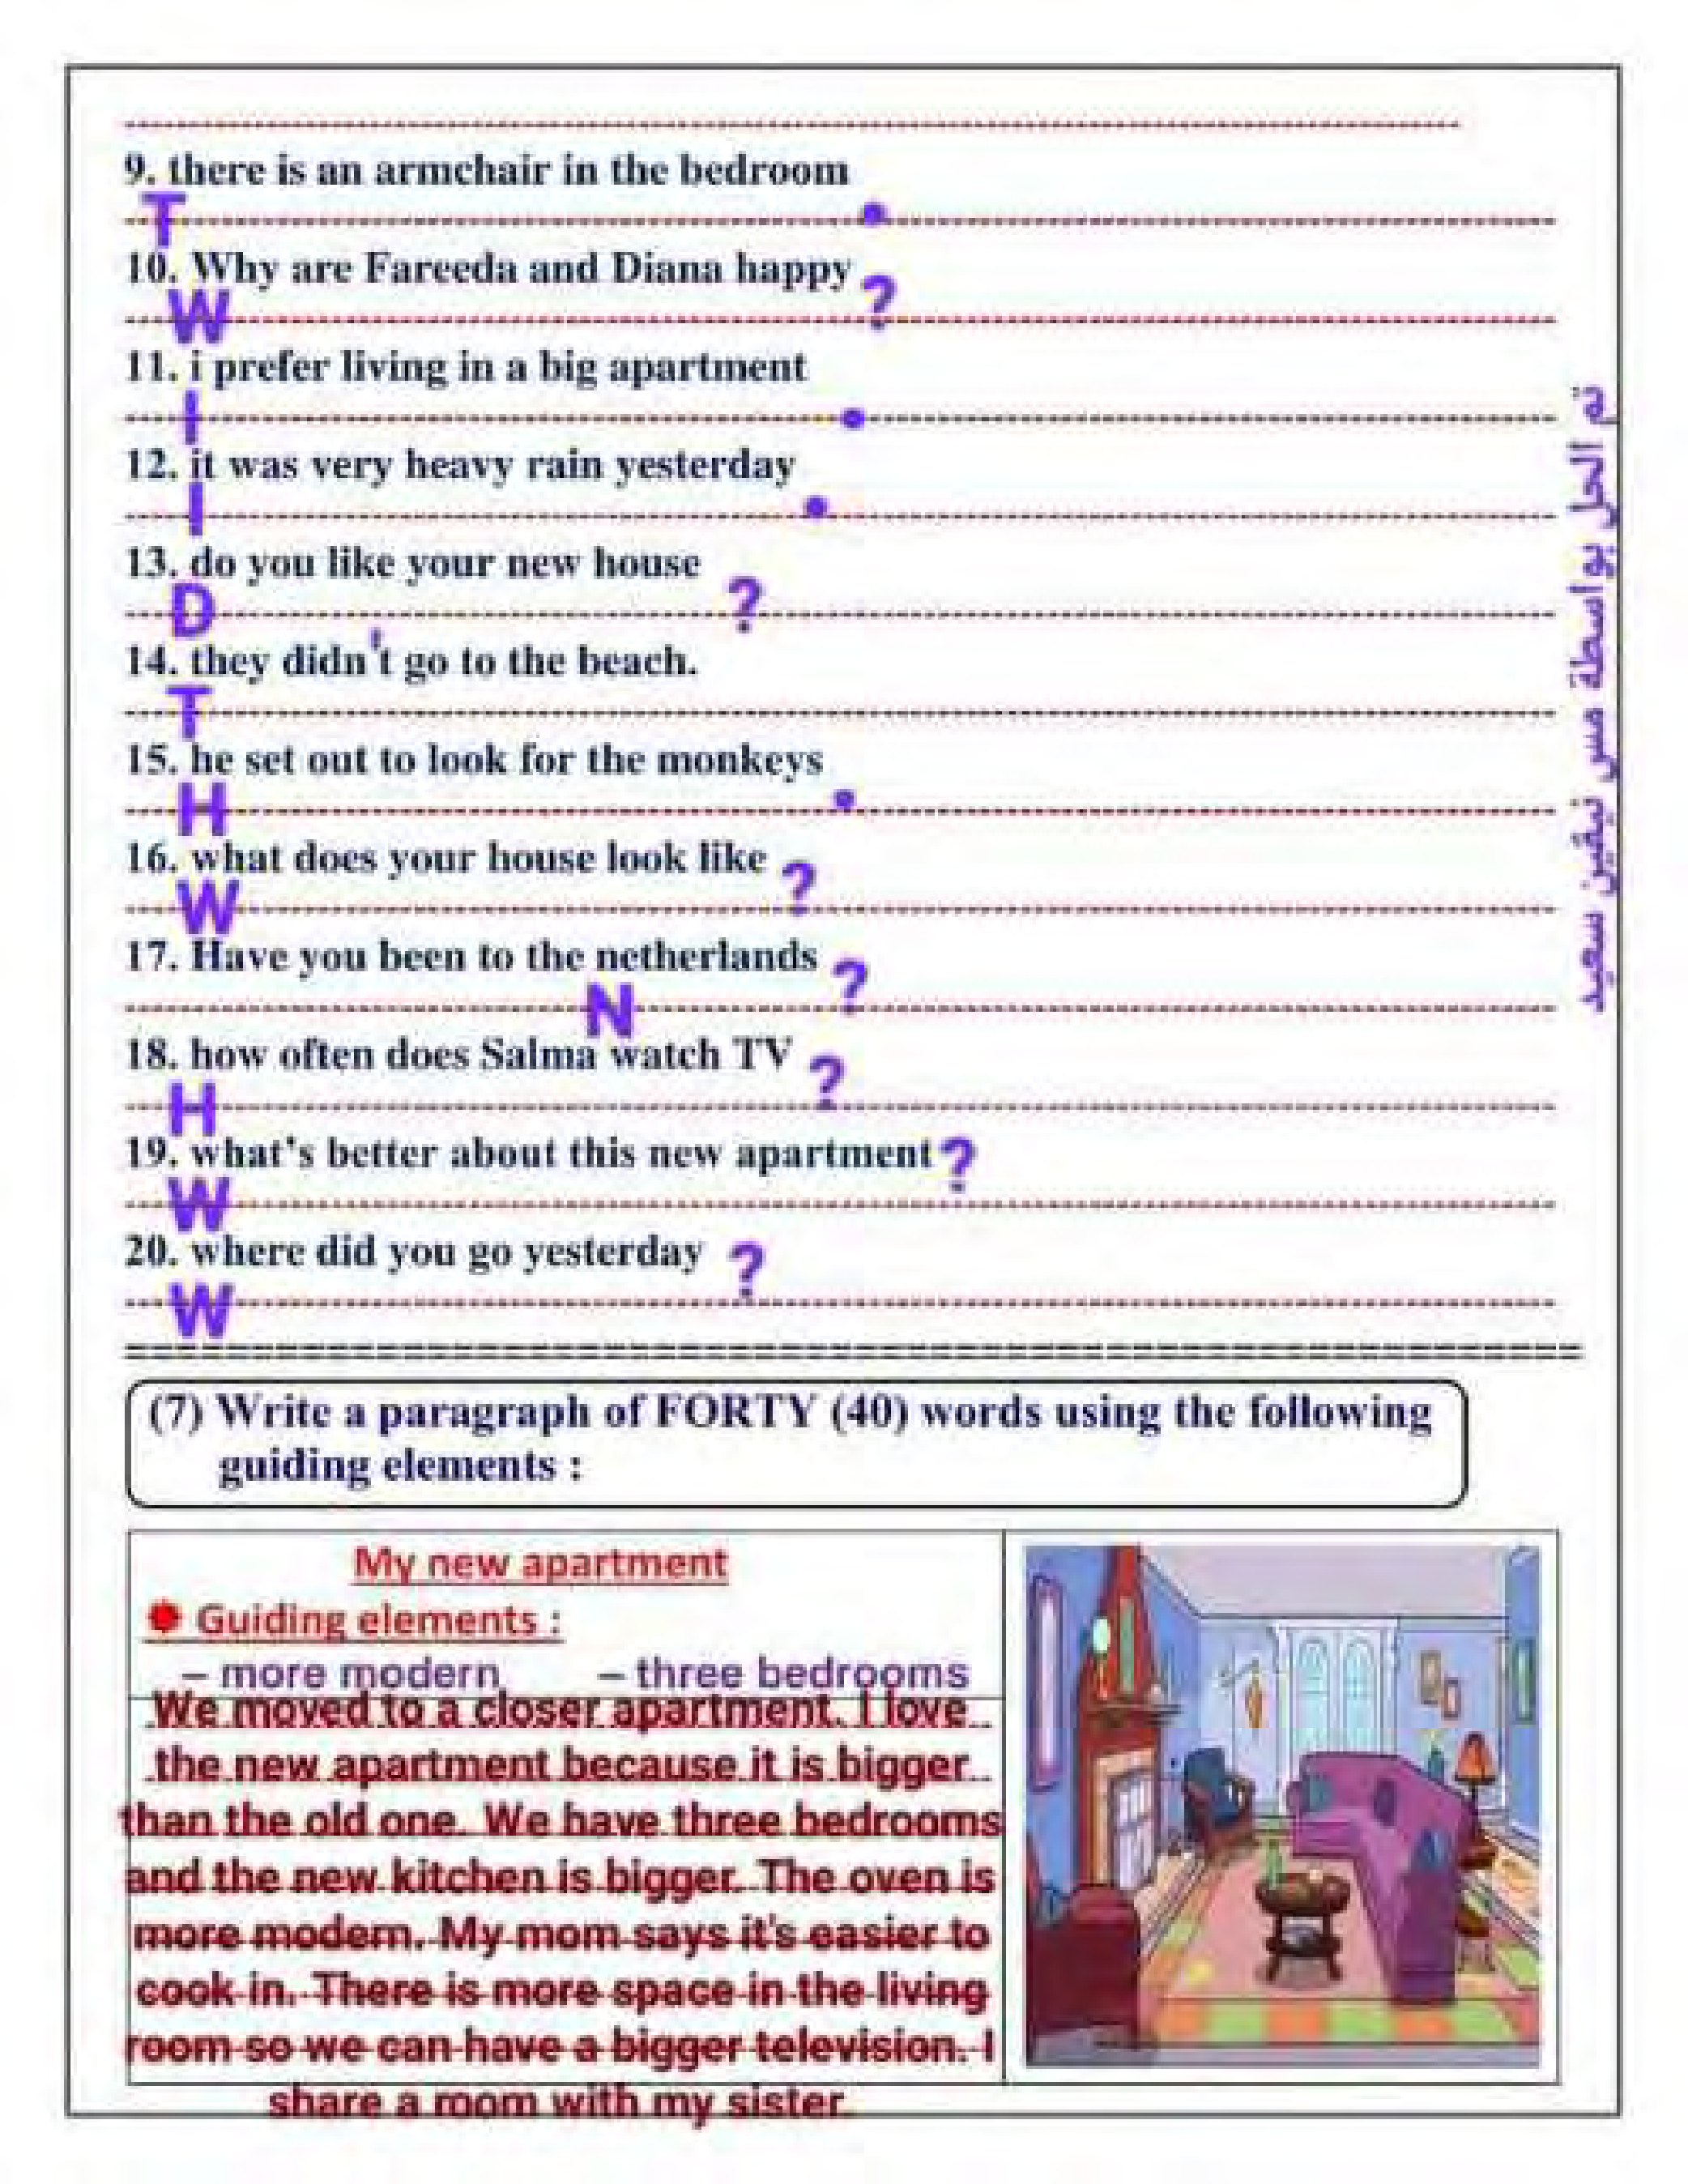 9. there is an armchair in the bedroom
T .
10. Why are Fareeda and Diana happy ?
W
11. i prefer living in a big apartment
I .
12. it was very heavy rain yesterday
I .
13. do you like your new house
D ?
14. they didn't go to the beach.
T
15. he set out to look for the monkeys
H .
16. what does your house look like ?
W
17. Have you been to the netherlands ?
N
18. how often does Salma watch TV ?
H
19. what's better about this new apartment ?
W
20. where did you go yesterday ?
W
تم الحل بواسطة مس نيفين سعيد
(7) Write a paragraph of FORTY (40) words using the following
guiding elements :
My new apartment
Guiding elements :
– more modern – three bedrooms
We moved to a closer apartment. I love
the new apartment because it is bigger
than the old one. We have three bedrooms
and the new kitchen is bigger. The oven is
more modern. My mom says it's easier to
cook in. There is more space in the living
room so we can have a bigger television. I
share a room with my sister.